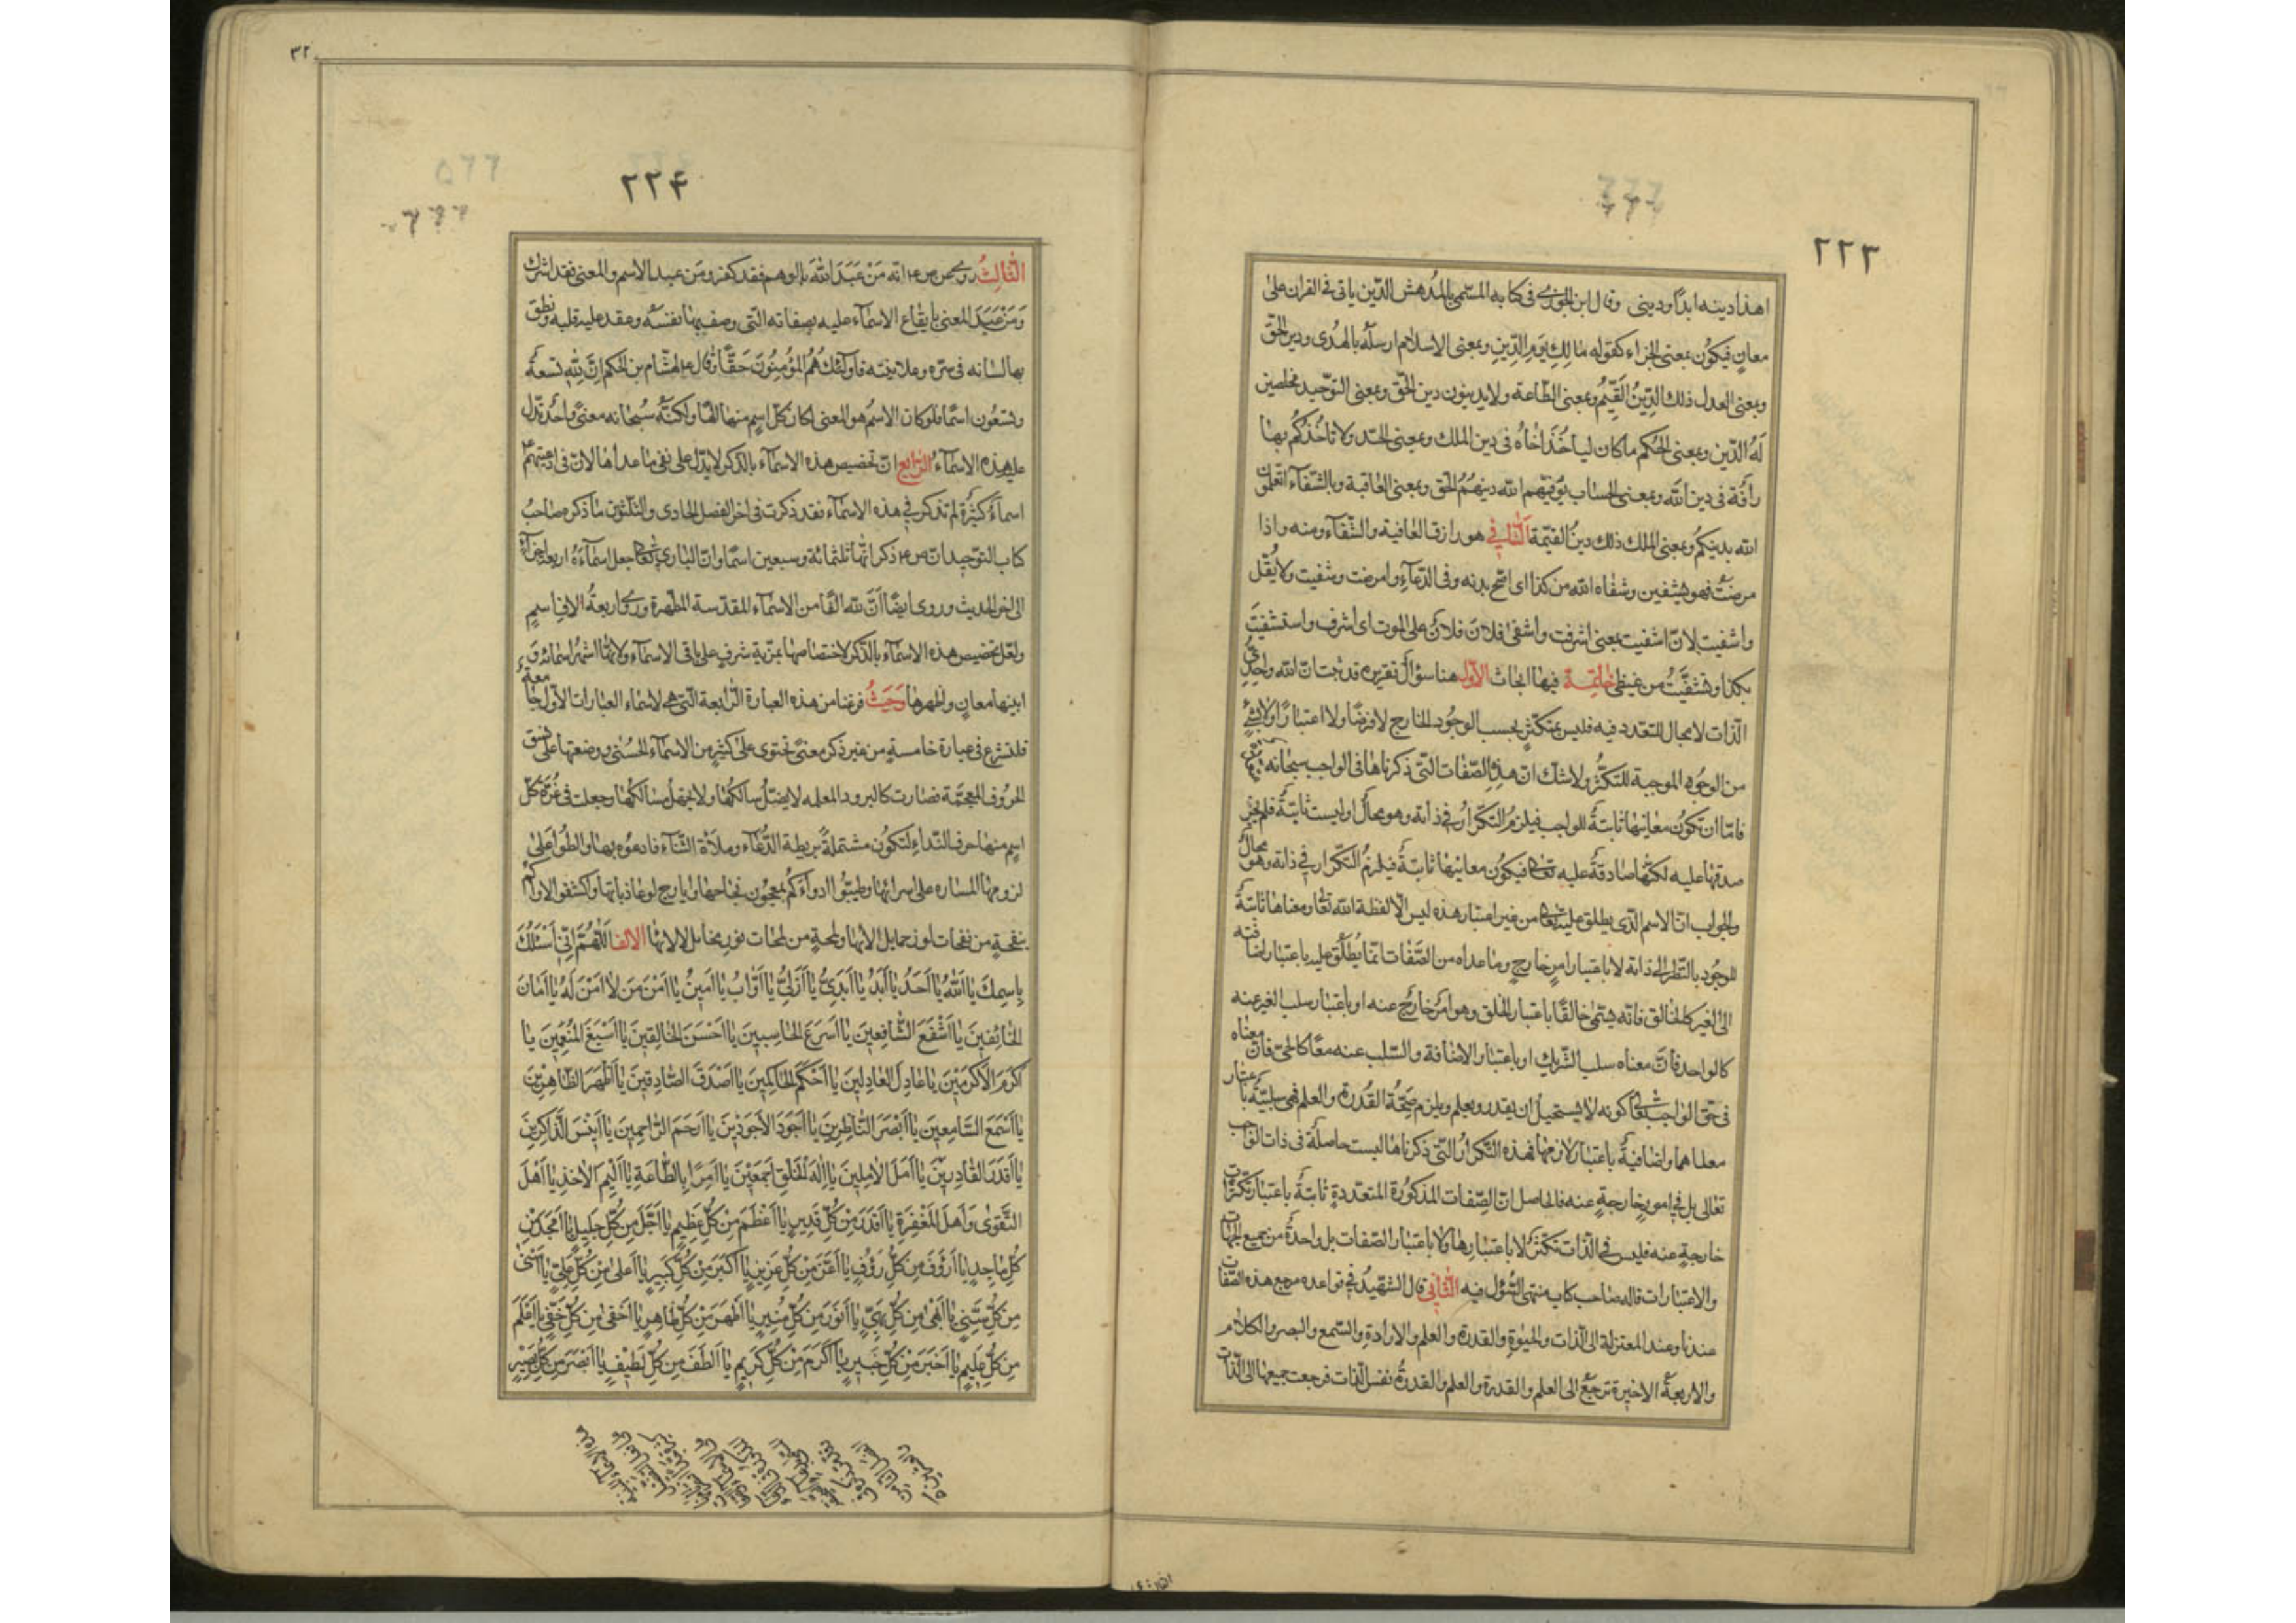 ٢٢٣
اهذا دينه ابدًا ودينى وقال ابن الجوزى فى كتابه المسمى بالمدهش الدّين ياتى فى القران على
معانٍ فيكون بمعنى الجزاء كقوله مالك يوم الدّين وبمعنى الاسلام ارسله بالهدى ودين الحقّ
وبمعنى العدل ذلك الدّين القيّم وبمعنى الطّاعة ولا يدينون دين الحقّ وبمعنى التوحيد مخلصين
له الدّين وبمعنى الحكم ما كان لياخذ اخاه فى دين الملك وبمعنى الحدّ ولا تاخذكم بهما
رأفة فى دين الله وبمعنى الحساب يوفّيهم الله دينهم الحق وبمعنى العاقبة وبالشّفآء اتعلمون
الله بدينكم وبمعنى الملك ذلك دين القيّمة الشّافي هو رازق العافية والشّفآء ومنه واذا
مرضت فهو يشفين وشفاه الله من كذا اى اصحّ بدنه وفى الدّعآء وامرضت وشفيت ولا يقل
واشفيت لانّ اشفيت بمعنى اشرفت واشفى فلان فلانٌ على الموت اى اشرف واستشفيت
بكذا وتشفّيت من غيظى خاتمة فيها ابحاث الاوّل هنا سؤال تقريره قد ثبت انّ الله واحدىّ
الذّات لا مجال للتعدد فيه فليس بمتكثّر بحسب الوجود الخارج لا فرضًا ولا اعتبارًا ولا بشئٍ
من الوجوه الموجبة للتكثّر ولا شك انّ هذه الصّفات التى ذكرناها فى الواجب سبحانه
فامّا ان تكون معانيها ثابتةً للواجب فيلزم التكرار فى ذاته وهو محال او ليست ثابتةً فلم يجز
صدقها عليه لكنّها صادقة عليه تعالى فيكون معانيها ثابتةً فيلزم التّكرار فى ذاته وهو محال
والجواب انّ الاسم الّذى يطلق عليه تعالى من غير اعتبار هذه ليس الّا لفظة الله تعالى ومعناها ثابتة
للوجود بالنّظر الى ذاته لا باعتبار امرٍ خارجٍ وما عداه من الصّفات انّما يطلق عليه باعتبار اضافته
الى الغير كالخالق فانّه يسمّى خالقًا باعتبار الخلق وهو امر خارج عنه او باعتبار سلب الغير عنه
كالواحد فانّ معناه سلب الشّريك او باعتبار الاضافة والسّلب عنه معًا كالحىّ فانّ معناه
فى حقّ الواجب تعالى كونه لا يستحيل ان يقدر ويعلم ويلزم صحّة القدرة والعلم فهى سلبيّة باعتبار
معناها واضافيةٌ باعتبار لازمها فهذه التّكرار الّتى ذكرناها ليست حاصلةً فى ذات الواجب
تعالى بل فى امورٍ خارجةٍ عنه فالحاصل انّ الصّفات المذكورة المتعدّدة ثابتةً باعتبار تكثرات
خارجةٍ عنه فليس فى الذّات تكثّر لا باعتبارها ولا باعتبار الصّفات بل واحدة من جميع الجهات
والاعتبارات قاله صاحب كتاب منتهى السّؤل فيه الثّانى قال الشّهيد فى قواعده مرجع هذه الصّفات
عندنا وعند المعتزلة الى الذّات والحيوة والقدرة والعلم والارادة والسّمع والبصر والكلام
والاربعة الاخيرة ترجع الى العلم والقدرة والعلم والقدرة نفس الذات فرجعت جميعها الى الذّات
٣٢
٢٢٤
الثّالث روى عن ص ع انّه من عبد الله بالوهم فقد كفر ومن عبد الاسم والمعنى فقد اشرك
ومن عبد المعنى بايقاع الاسمآء عليه بصفاته الّتى وصف بها نفسه وعقد عليه قلبه ونطق
بها لسانه فى سرّه وعلانيته فاولئك هم المؤمنون حقًّا وقال ع لهشام بن الحكم انّ لله تسعة
وتسعون اسمًا فلو كان الاسم هو المعنى لكان كلّ اسم منها الهًا ولكنّه سبحانه معنىً واحد تدلّ
عليه هذه الاسمآء الرّابع انّ تخصيص هذه الاسمآء بالذّكر لا يدلّ على نفى ما عداها لانّ فى ادعيتهم ع
اسمآء كثيرة لم تذكر فى هذه الاسمآء فقد ذكرت فى اخر الفصل الحادى والثّلثون ما ذكره صاحب
كتاب التوحيد انّ ص ع ذكر انّها ثلثمائة وسبعين اسمًا وانّ البارى تعالى جعل اسمآءه اربعة اجزآء
الى اخر الحديث وروى ايضًا انّ لله الفًا من الاسمآء المقدّسة المطهّرة وروى اربعة الاف اسمٍ
ولعلّ تخصيص هذه الاسمآء بالذّكر لاختصاصها بمزيّة شرفٍ على باقى الاسمآء ولانّها اشهر اسمائه و
ابينها معانٍ واظهرها وحيث فرغنا من هذه العبارة الرّابعة الّتى هى لاسماء العبارات الاول جامعة
فلنشرع فى عبارة خامسةٍ من غير ذكر معنىً تحتوى على كثيرٍ من الاسمآء الحسنى ووضعتها على نسق
الحروف المعجمة فصارت كالبرود المعلمه لا يضلّ سالكها ولا يجهل سالكها وجعلت فى غرّة كلّ
اسمٍ منها حرف النّداء لتكون مشتملةً بريطة الدّعآء وملآءة الثّنآء فادعوه بها والطّوا على
بنفحةٍ من نفحات لوز حمايل الانها ولمحةٍ من لمحات نور مخايل لالائها الالف اللّهمّ انّى اسئلك
باسمك يا الله يا احد يا ابد يا ابدىّ يا ازلىّ يا اوّاب يا امين يا امن من لا امن له يا امان
الخائفين يا اشفع الشّافعين يا اسرع الحاسبين يا احسن الخالقين يا اسبغ المنعمين يا
اكرم الاكرمين يا عادل العادلين يا احكم الحاكمين يا اصدق الصّادقين يا اظهر الظّاهرين
يا اسمع السّامعين يا ابصر النّاظرين يا اجود الاجودين يا ارحم الرّاحمين يا انيس الذّاكرين
يا اقدر القادرين يا امل الاملين يا اله الخلق اجمعين يا امرًا بالطّاعة يا اليم الاخذ يا اهل
التّقوى واهل المغفرة يا اقدر من كلّ قدير يا اعظم من كلّ عظيم يا اجلّ من كلّ جليل يا امجد من
كلّ ماجد يا ارؤف من كلّ رؤف يا اعزّ من كلّ عزيز يا اكبر من كلّ كبير يا اعلى من كلّ علىّ يا اسنى
من كلّ سنىّ يا ابهى من كلّ بهىّ يا انور من كلّ منير يا اظهر من كلّ ظاهر يا اخفى من كلّ خفىّ يا اعلم
من كلّ عليم يا اخبر من كلّ خبير يا اكرم من كلّ كريم يا الطف من كلّ لطيف يا ابصر من كلّ بصير